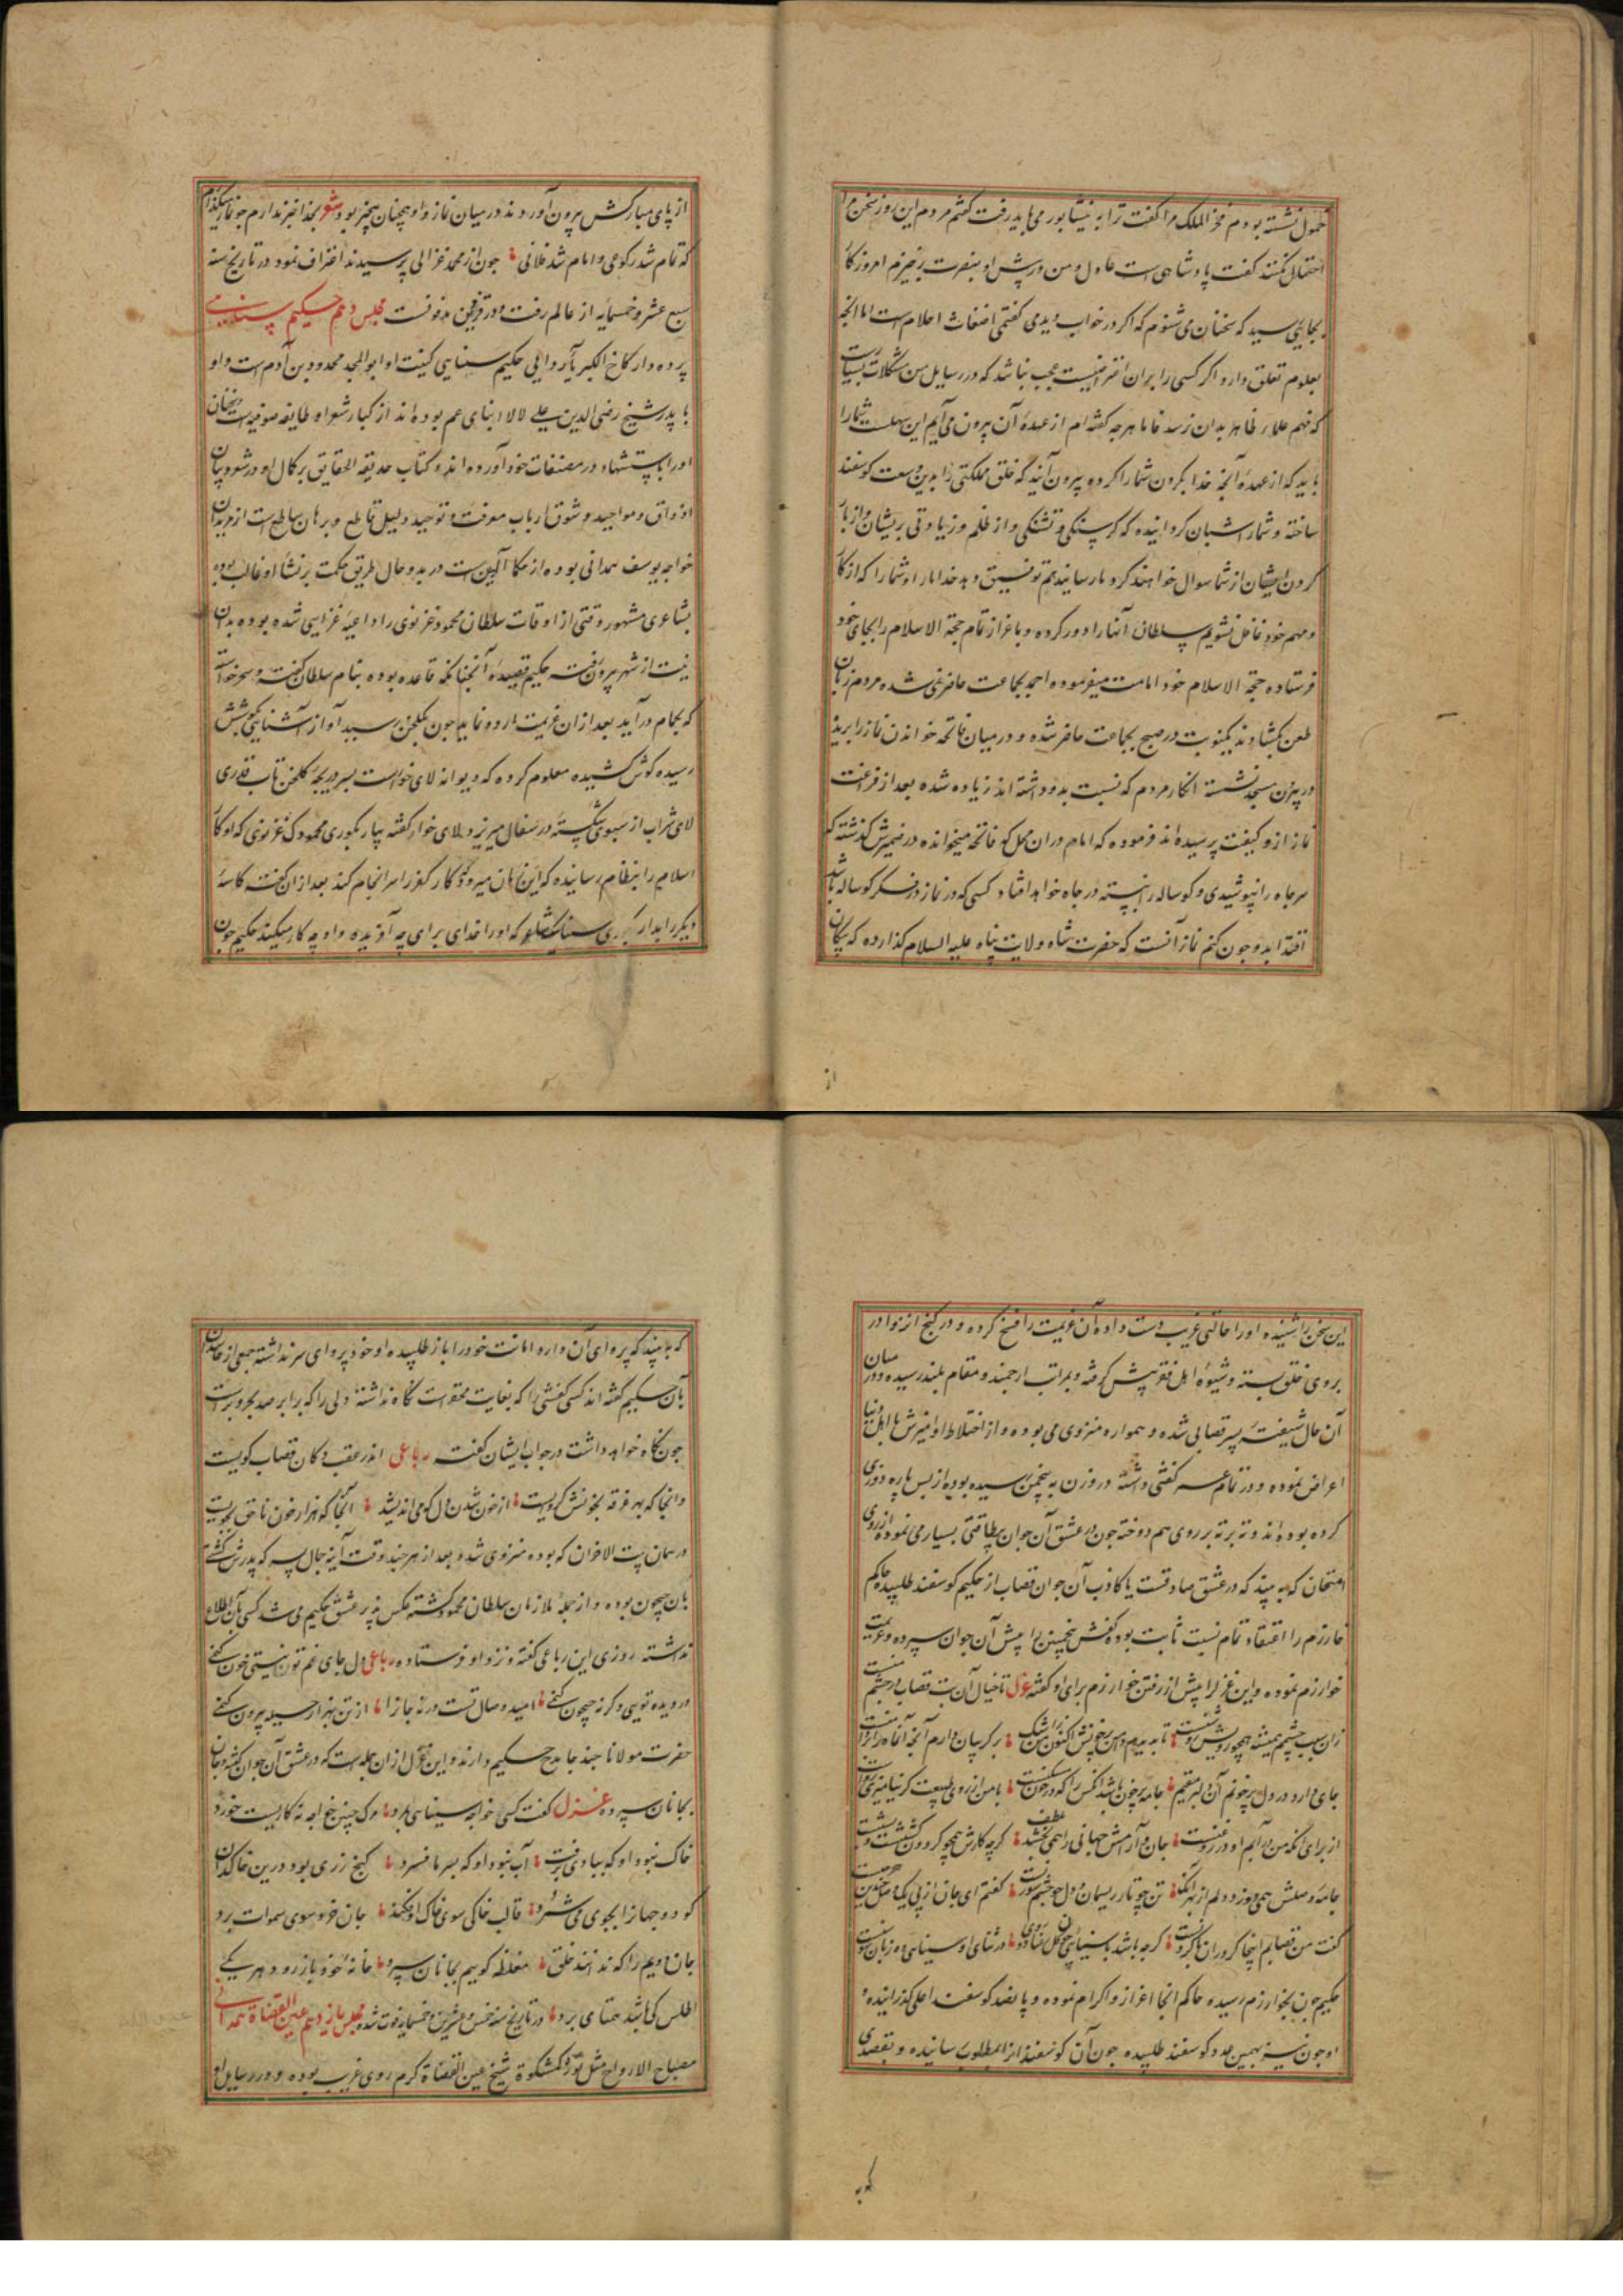 خمول نشسته بودم فخر الملک مرا گفت ترا به نیشابور می باید رفت گفتم مردم این روز سخن مرا
احتمال نکنند گفت پادشاهی است عادل و من در پیش او بنصرت برخیزم امروز کار
بجایی رسید که سخنان می شنوم که اگر در خواب دیدمی گفتمی اضغاث احلام است اما آنچه
بعلوم تعلق دارد اگر کسی را بر آن اعتراضیست عجب نباشد که در رسایل من مشکلات بسیارست
که فهم علماء ظاهر بدان نرسد فاما هرچه گفته ام از عهدهٔ آن بیرون می آیم این سهلست شما را
باید که از عهدهٔ آنچه خدا بگردن شما را کرده بیرون آیید که خلق مملکتی را بدین وسعت گوسفند
ساخته و شما را شبان گردانیده که گرسنگی و تشنگی و از ظلم و زیادتی بریشان و از بار
گردن ایشان از شما سوال خواهند کرد توفیق دهد خدا ما را و شما را که از کار
و مهم خود غافل نشویم سلطان آنها را دور کرده و باعزاز تمام حجة الاسلام را بجای خود
فرستاده حجة الاسلام خود امامت میفرموده احمد بجماعت حاضر نمی شده مردم زبان
طعن بگشادند یکنوبت در صبح بجماعت حاضر شده و در میان فاتحه خواندن نماز را بریده
در بیرون مسجد نشسته انکار مردم که نسبت بدو داشته اند زیاده شده بعد از فراغت
نماز ازو کیفیت پرسیده اند فرموده که امام در آن محل که فاتحه میخوانده در ضمیرش گذشته که
سر چاه را نپوشیدی و گوساله را نبسته در چاه خواهد افتاد کسی که در نماز در فکر گوساله باشد
اقتدا بدو چون کنم نماز آنست که حضرت شاه ولایت پناه علیه السلام گذارده که پیکان
از
از پای مبارکش بیرون آوردند در میان نماز و او همچنان بیخبر بود شعر بخدا خبر ندارم چو نماز میگذارم
که تمام شد رکوعی و امام شد فلانی چون از محمد غزالی پرسیدند اعتراف نمود در تاریخ سنه
سبع عشر و خمسمایه از عالم رفت و در قزوین مدفونست مجلس دهم حکیم سنایی
پرده دار کاخ الکبریاء ردایی حکیم سنایی کنیت او ابو المجد مجدود بن آدم است و او
با پدر شیخ رضی الدین علی لالا ابنای عم بوده اند از کبار شعراء طایفه صوفیه است و سخنان
او را باستشهاد در مصنفات خود آورده اند و کتاب حدیقة الحقایق بر کمال او در شعر و بیان
اذواق و مواجید و شوق ارباب معرفت و توحید دلیل قاطع و برهان ساطع است از مریدان
خواجه یوسف همدانی بوده از حکماء آلهین است در بدو حال طریق حکمت بر نشاء او غالب بوده
بشاعری مشهور وقتی از اوقات سلطان محمود غزنوی را داعیهٔ غزایی شده بوده بدان
نیت از شهر بیرون رفته حکیم قصیدهٔ آنچنانکه قاعده بوده بنام سلطان گفته و سحر خواسته
که بحمام درآید بعد از آن عزیمت اردو نماید چون بگلخن رسید آواز آشنایی بگوشش
رسیده گوش کشیده معلوم کرده که دیوانه لای خوار است بسر دریچهٔ گلخن تاب قدری
لای شراب از سبوی شکسته در سفال میریزد و لای خوار گفته بیار بکوری محمودک غزنوی که او کار
اسلام را بنظام رسانیده که این زمان میرود کار کفر را سرانجام کند بعد از آن گفته کاسهٔ
دیگر را بدار بکوری سنایک شاعر که او را خدای برای چه آفریده و او چه کار میکند حکیم چون
این سخن را شنیده او را حالتی غریب دست داده آن عزیمت را فسخ کرده و در کنج انزوا در
بروی خلق بسته و شیوهٔ اهل فقر پیش گرفته و بمراتب ارجمند و مقام بلند رسیده و در میان
آن حال شیفتهٔ پسر قصابی شده و همواره منزوی می بوده و از اختلاط و آمیزش با اهل دنیا
اعراض نموده و در تمام عمر کفشی داشته در وزن به پنجمن رسیده بوده از بس پاره دوزی
کرده بوده اند و ته بر ته بر روی هم دوخته چون در عشق آن جوان بیطاقتی بسیار می نموده از روی
امتحان که به بیند که در عشق صادقست یا کاذب آن جوان قصاب از حکیم گوسفند طلبیده حاکم
خارزم را اعتقاد تمام نسبت ثابت بوده کفش پنجمن را پیش آن جوان سپرده و عزیمت
خوارزم نموده و این غزل را پیش از رفتن خوارزم برای او گفته غزل تا خیال آن بت قصاب در چشم منست
زان سبب چشمم همیشه همچو رویش روشنست تا بدیدم دامن پر خونش اکنون من ز اشک بر گریبان دارم آنچه آن ماه را بر دامنست
جای دارد در دل پر خونم آن دلبر مقیم جامه پر خون باشد آنکس را که در خون مسکنست با من از روی طبیعت گر نیامیزد رواست
از برای آنکه من در آبم او در روغنست جان و آرامش جهانی را همی بخشد بلطف گرچه کارش همچو گردون کشتنست و بستنست
جامهٔ وصلش همی دوزد دلم از بهر آنکه تن چو تار ریسمان و دل چو چشم سوزنست گفتم ای جان از پی یک وصل چندین هجر چیست
گفت من قصابم اینجا گرد ران با گردنست گرچه باشد با سنایی چون گل رعنا دو روی در ثنای او سنایی ده زبان چون سوسنست
حکیم چون بخوارزم رسیده حاکم آنجا اعزاز و اکرام نموده و پانصد گوسفند اعلی گذرانیده و
او چون نیز بهمین عدد گوسفند طلبیده چون آن گوسفند را بمطلوب رسانیده و بقصدی
که به
که به بیند که پروای آن دارد امانت خود را باز طلبیده او خود پروای سر نداشته جمعی از حاسدان
بآن حکیم گفته اند کسی کفشی را که بغایت محقر است نگاه نداشته دلی را که برابر صد بحر و بر است
چون نگاه خواهد داشت در جواب ایشان گفته رباعی اندر عقب دکان قصاب گویست
و آنجا که بهر غرقه بخونش گرویست از خون شدن دل که می اندیشد آنجا که هزار خون ناحق بجویست
در همان بیت الاخوان که بوده منزوی شده بعد از هر چند وقت آینه جمال پسر که پدرش کشتی
بان جیحون بوده و از جمله ملازمان سلطان محمود گشته عکس پذیر عشق حکیم می شد کسی بآن اطلاع
نداشته روزی این رباعی گفته و نزد او فرستاده رباعی دل جای غم توزنیستی خون کنمی
در دیده تویی وگرنه جیحون کنمی امید وصال تست ورنه جان را از تن بهزار حیله بیرون کنمی
حضرت مولانا چند جا مدح حکیم دارند و این غزل از آن جمله است که در عشق آن جوان کشته و جان
بجانان سپرده غزل گفت کسی خواجه سنایی بمرد مرگ چنین خواجه نه کاریست خورد
خاک نبود او که ببادی برفت آب نبود او که بسرما فسرد گنج زری بود درین خاکدان
کو دو جهان را بجوی می شمرد قالب خاکی سوی خاک اوفکند جان خرد سوی سموات برد
جان دویم را که ندانند خلق مغلطه گوییم بجانان سپرد خانهٔ خود باز رود هر یکی
اطلس کی باشد همتای برد در تاریخ سنه خمس و عشرین و خمسمایه فوت شده مجلس یازدهم عین القضاة همدانی
مصباح الارواح مثل نوره کمشکوة شیخ عین القضاة گرم روی غریب بوده و در رسایل او